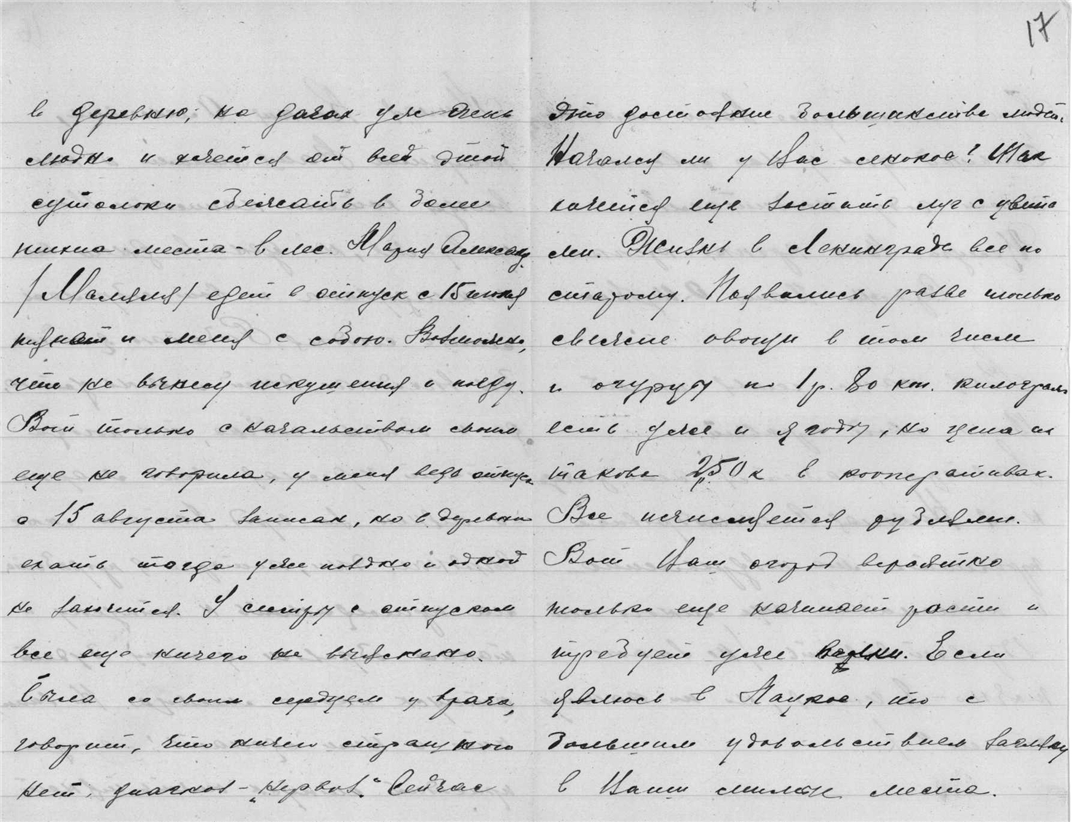 17
в деревню, на дачах уже очень
людно и хочется от всей этой
сутолоки сбежать в более
тихие места - в лес. Мария Александ.
/Маляля/ едет в отпуск с 15 июня
тянет и меня с собою. Возможно,
что не вынесу искушения и поеду.
Вот только с начальством своим
еще не говорила, у меня ведь отпуск
с 15 августа записан, но в деревню
ехать тогда уже поздно и одной
не захочется. У сестры с отпуском
все еще ничего не выяснено.
Была со своим сердцем у врача,
говорит, что ничего страшного
нет, диагноз - „нервоз". Сейчас
это достояние большинства людей.
Начался ли у Вас сенокос? Так
хочется еще застать луг с цвета
ми. Жизнь в Ленинграде все по
старому. Появились разве только
свежие овощи в том числе
и огурцы по 1 р. 80 коп. килограм
есть уже и ягоды, но цена их
такова 2,50 к в кооперативах.
Все исчисляется рублями.
Вот Ваш огород вероятно
только еще начинает расти и
требует уже
Если
явлюсь в
то с
большим удовольствием загляну
в Ваши милые места.